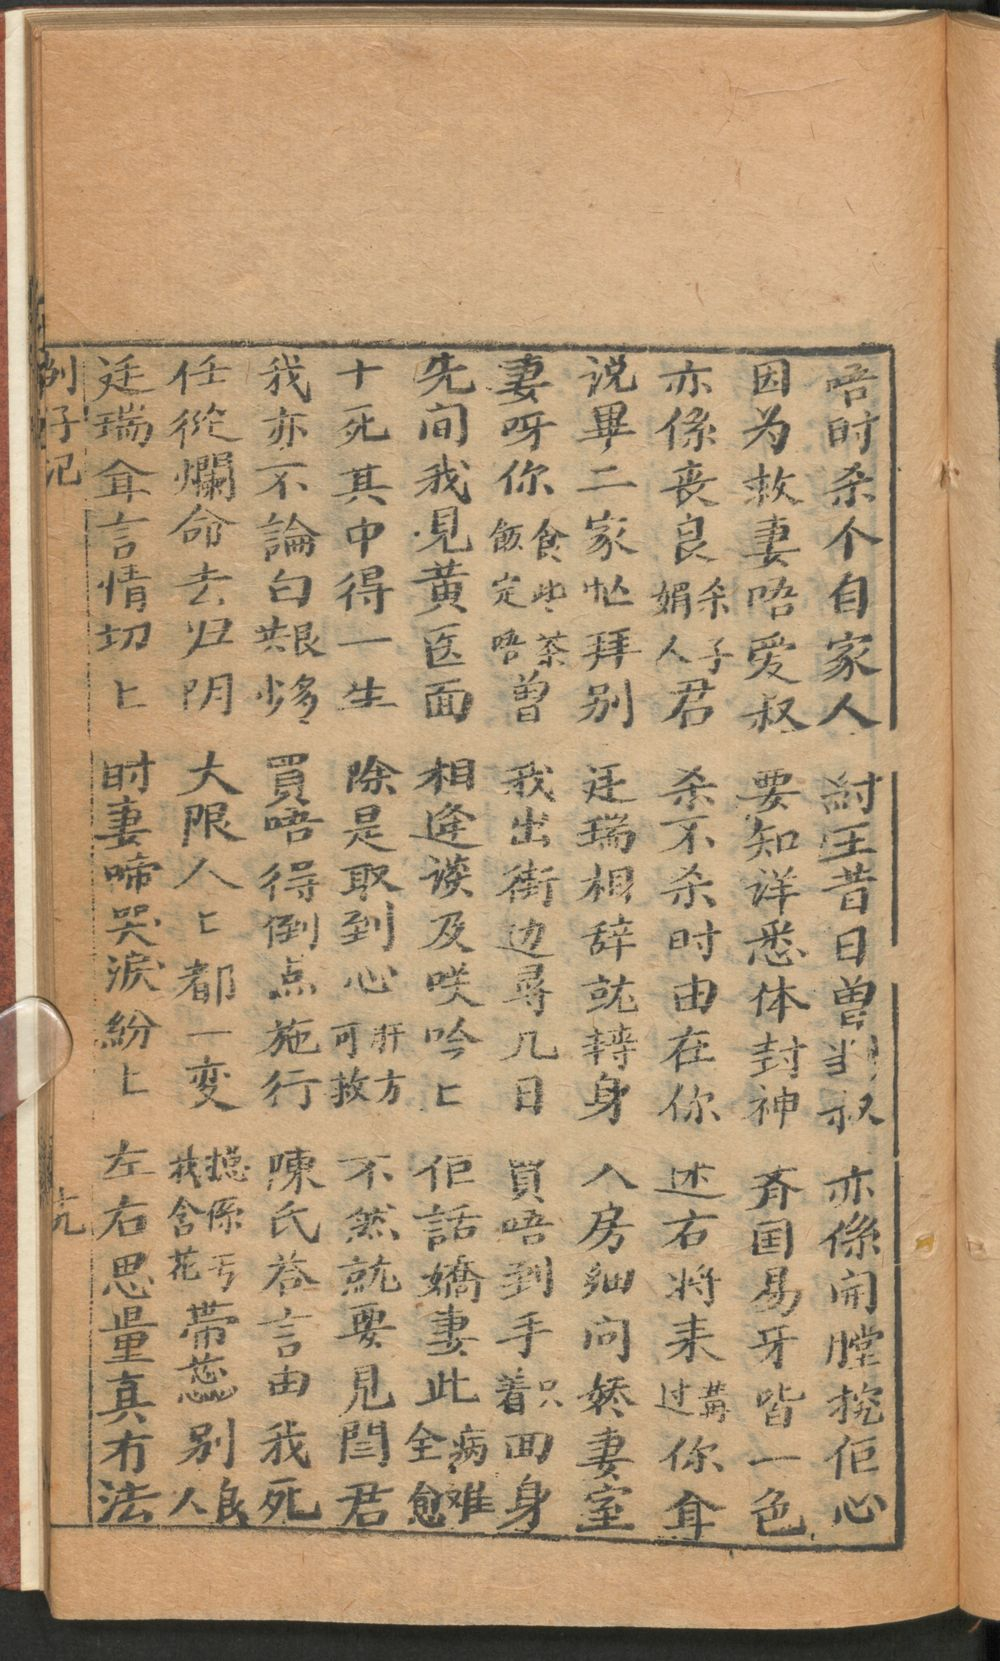 唔时杀个自家人 紂王昔日曾判叔 亦係開膛挖佢心
因为救妻唔爱叔 要知详悉体封神 齐国易牙皆一色
亦係丧良杀子媚人君 杀不杀时由在你 述右将来講过你耸
说畢二家忙拜别 廷瑞相辞就轉身 入房细问娇妻室
妻呀你食些茶飯定唔曾 我出街边尋几日 買唔到手只着面身
先间我見黄医面 相逢谈及咲吟匕 佢話嬌妻此病难全愈
十死其中得一生 除是取到心肝方可救 不然就要見閆君
我亦不論白艰共少多 買唔得倒点施行 陳氏答言由我死
任從爛命去归阴 大限人匕都一变 总係丐我含花帶蕊别良人
廷瑞耸言情切匕 时妻啼哭淚紛匕 左右思量真冇法
刿子记 十九